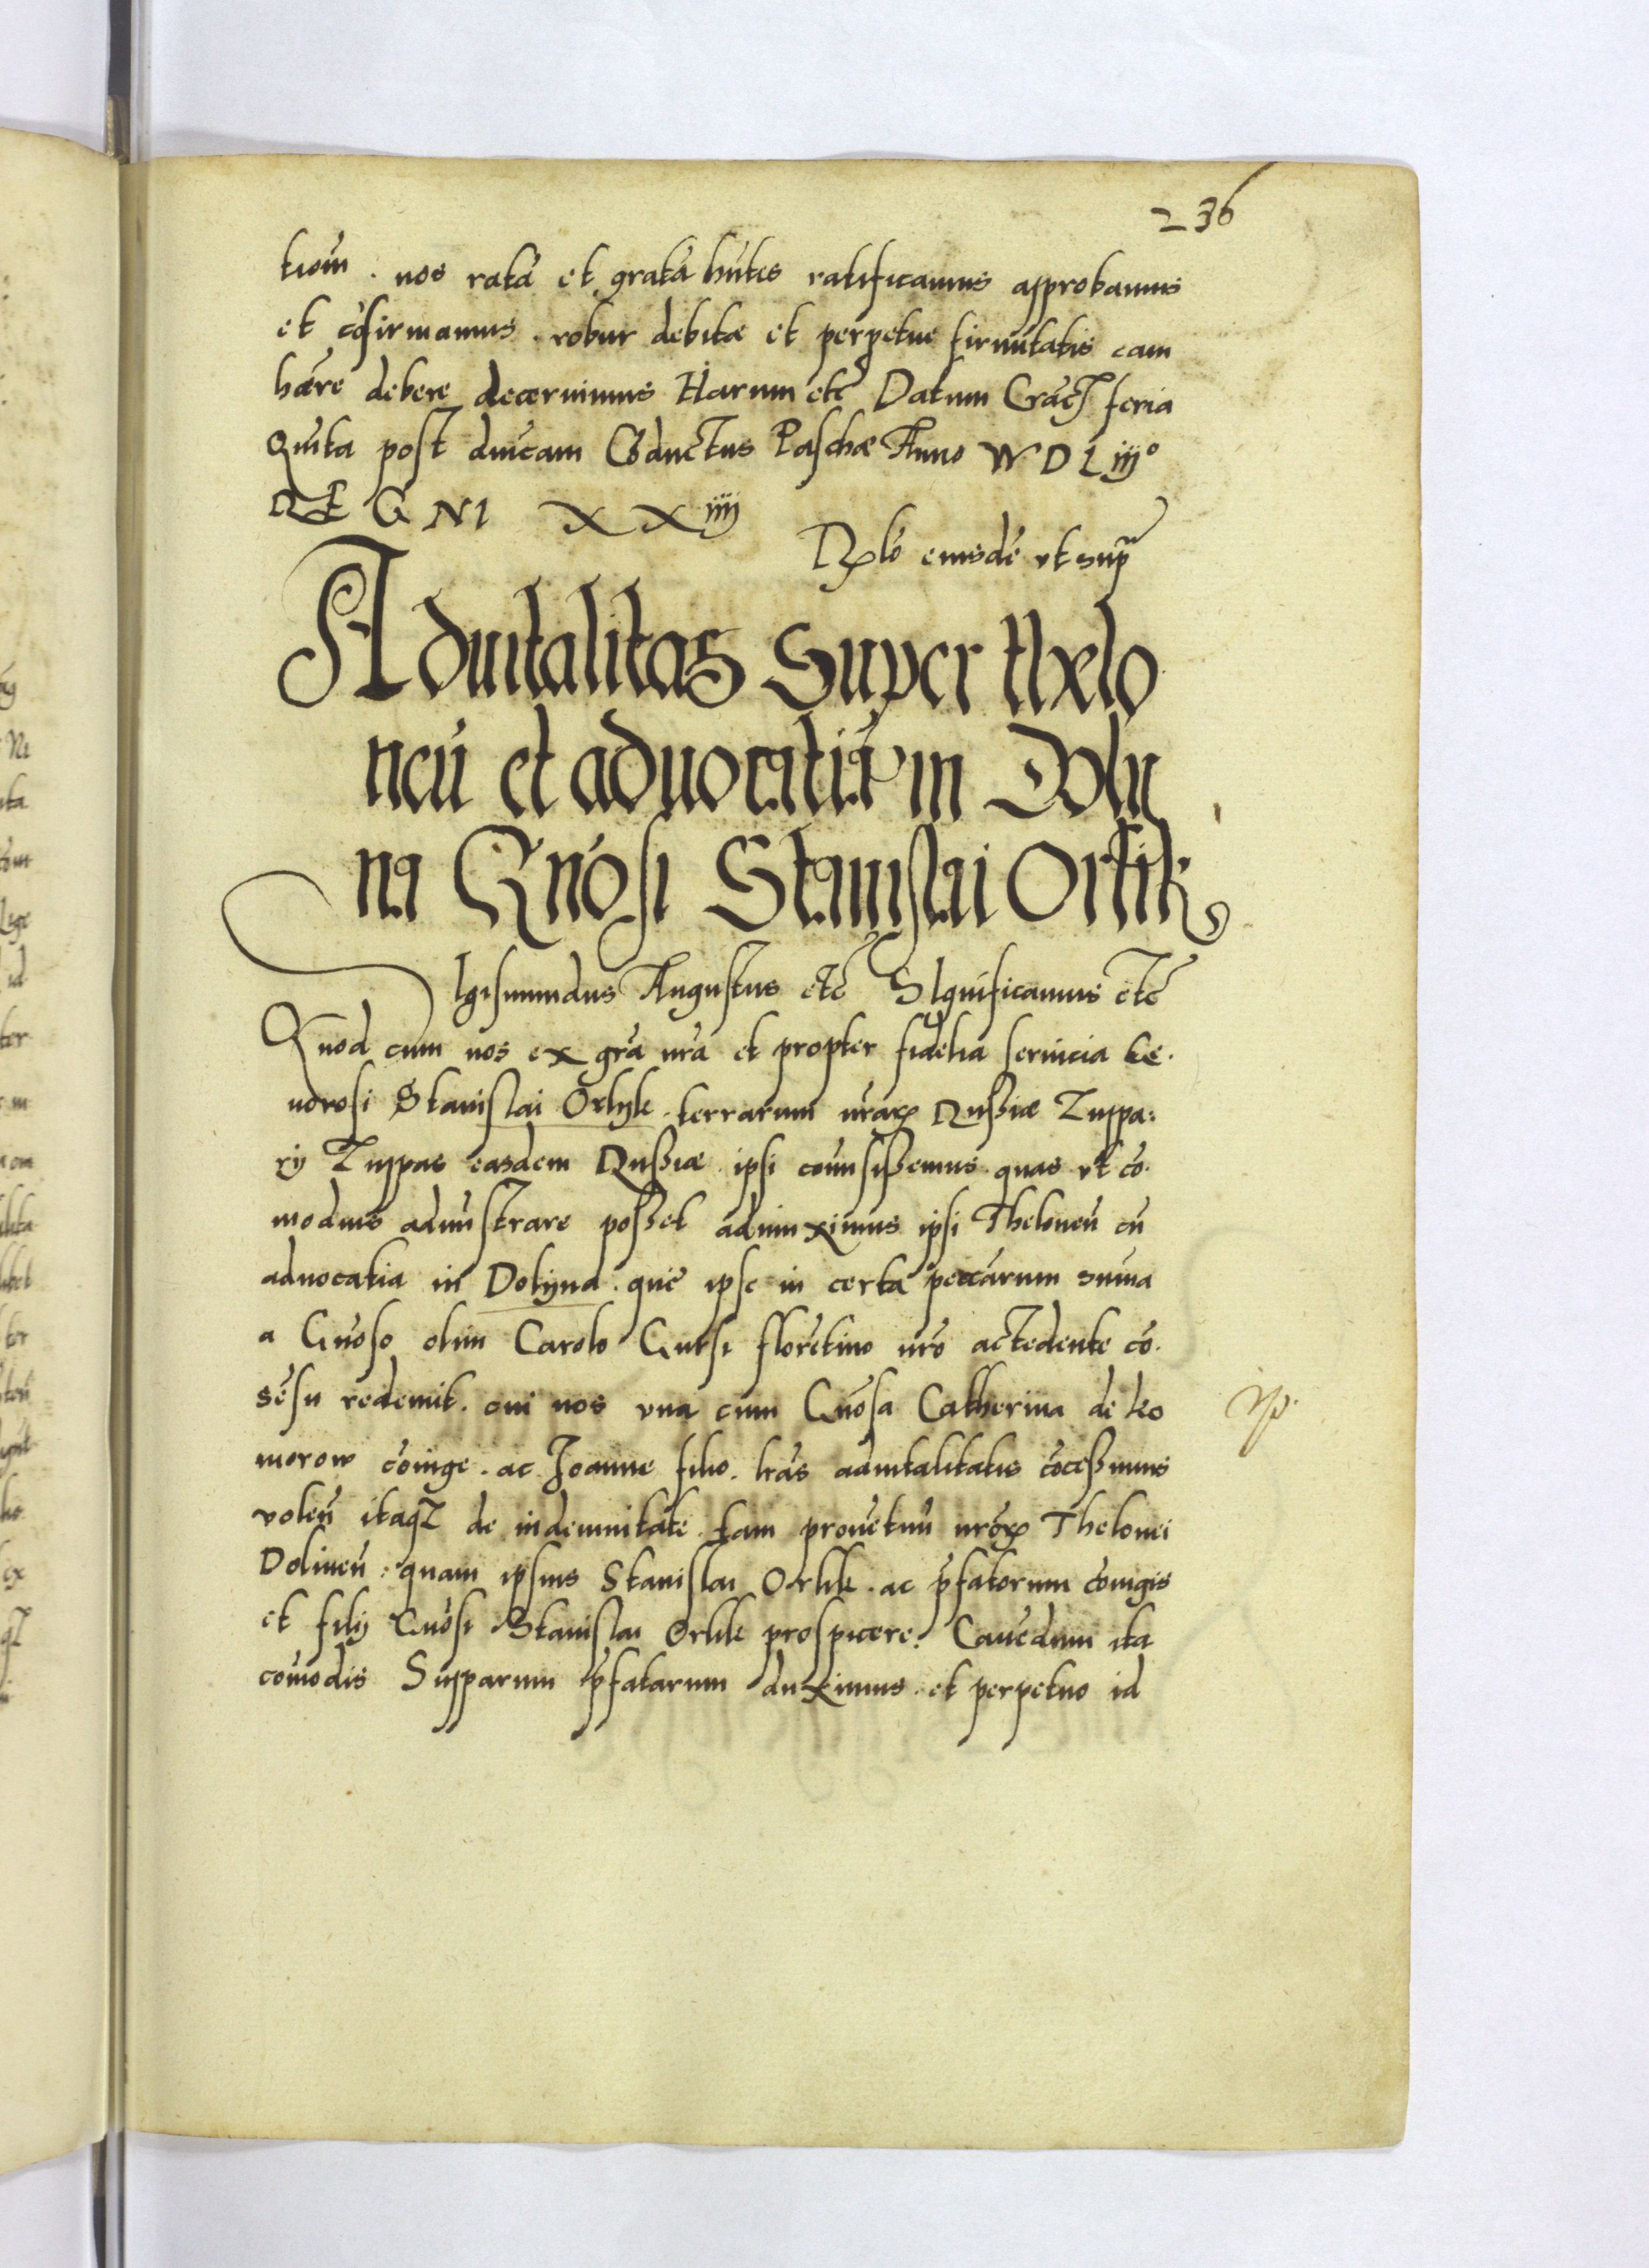 236
tiom̄. nos ratā et gratā hn̄tes ratificamus approbamus
et cōfirmamus. robur debitæ et perpetuæ firmitatis eam
hære debere decernimus Harum etc̄ Datum Crac̄ feria
Quīta post dn̄icam Cōductus Paschæ Anno M D L iijº
REGNI XXiiij
Rlō eiusdē vt sup
Aduitalitas Super thelo
neū et aduocatiā in Doly
na Gn̄osi Stanislai Orlik
Sigismundus Augustus etc̄ Significamus etc̄
Quod cum nos ex gr̄a nr̄a et propter fidelia seruicia Ge.
norosi Stanislai Orlyk. terrarum nr̄arꝝ Russiæ Zuppa:
rij Zuppas easdem Russiæ ipsi com̄isissemus. quas vt cō.
modius admīstrare posset adiunximus ipsi Theloneū cū
aduocatia in Dolyna. quē ipse in certa peccūarum sum̄a
a Gn̄oso olim Carolo Gutsi florētino nr̄o accedente cō.
sēsu redemit. cui nos vna cum Gn̄osa Catherina de Ko
morow cōiuge. ac Joanne filio. lr̄as aduitalitatis cōcessimus
volen̄ itaqꝫ de indemnitate tam prouētuū nr̄orꝝ Thelonei
Dolinen̄. quam ipsius Stanislai Orlik. ac p̄fatorum cōiugis
et filij Gn̄osi Stanislai Orlik prospicere. Cauēdum ita
com̄odis Supparum p̄fatarum duximus. et perpetuo id